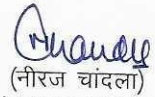 (नीरज चांदला)